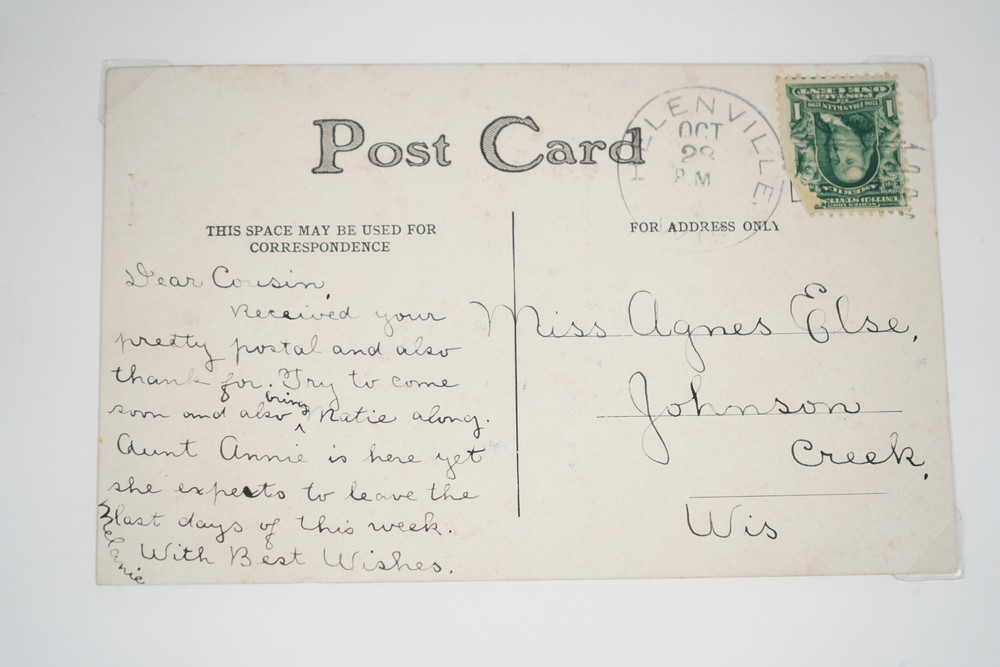 Post Card
HELENVILLE
OCT
28
M
THIS SPACE MAY BE USED FOR
CORRESPONDENCE
FOR ADDRESS ONLY
ONE CENT
POSTAGE
1 1
AMERICA
UNITED STATES OF
SERIES 1902
Dear Cousin,
Received your
pretty postal and also
thank for. Try to come
soon and also bring Katie along.
Aunt Annie is here yet
she expects to leave the
last days of this week.
With Best Wishes.
Melanie
Miss Agnes Else,
Johnson
Creek,
Wis